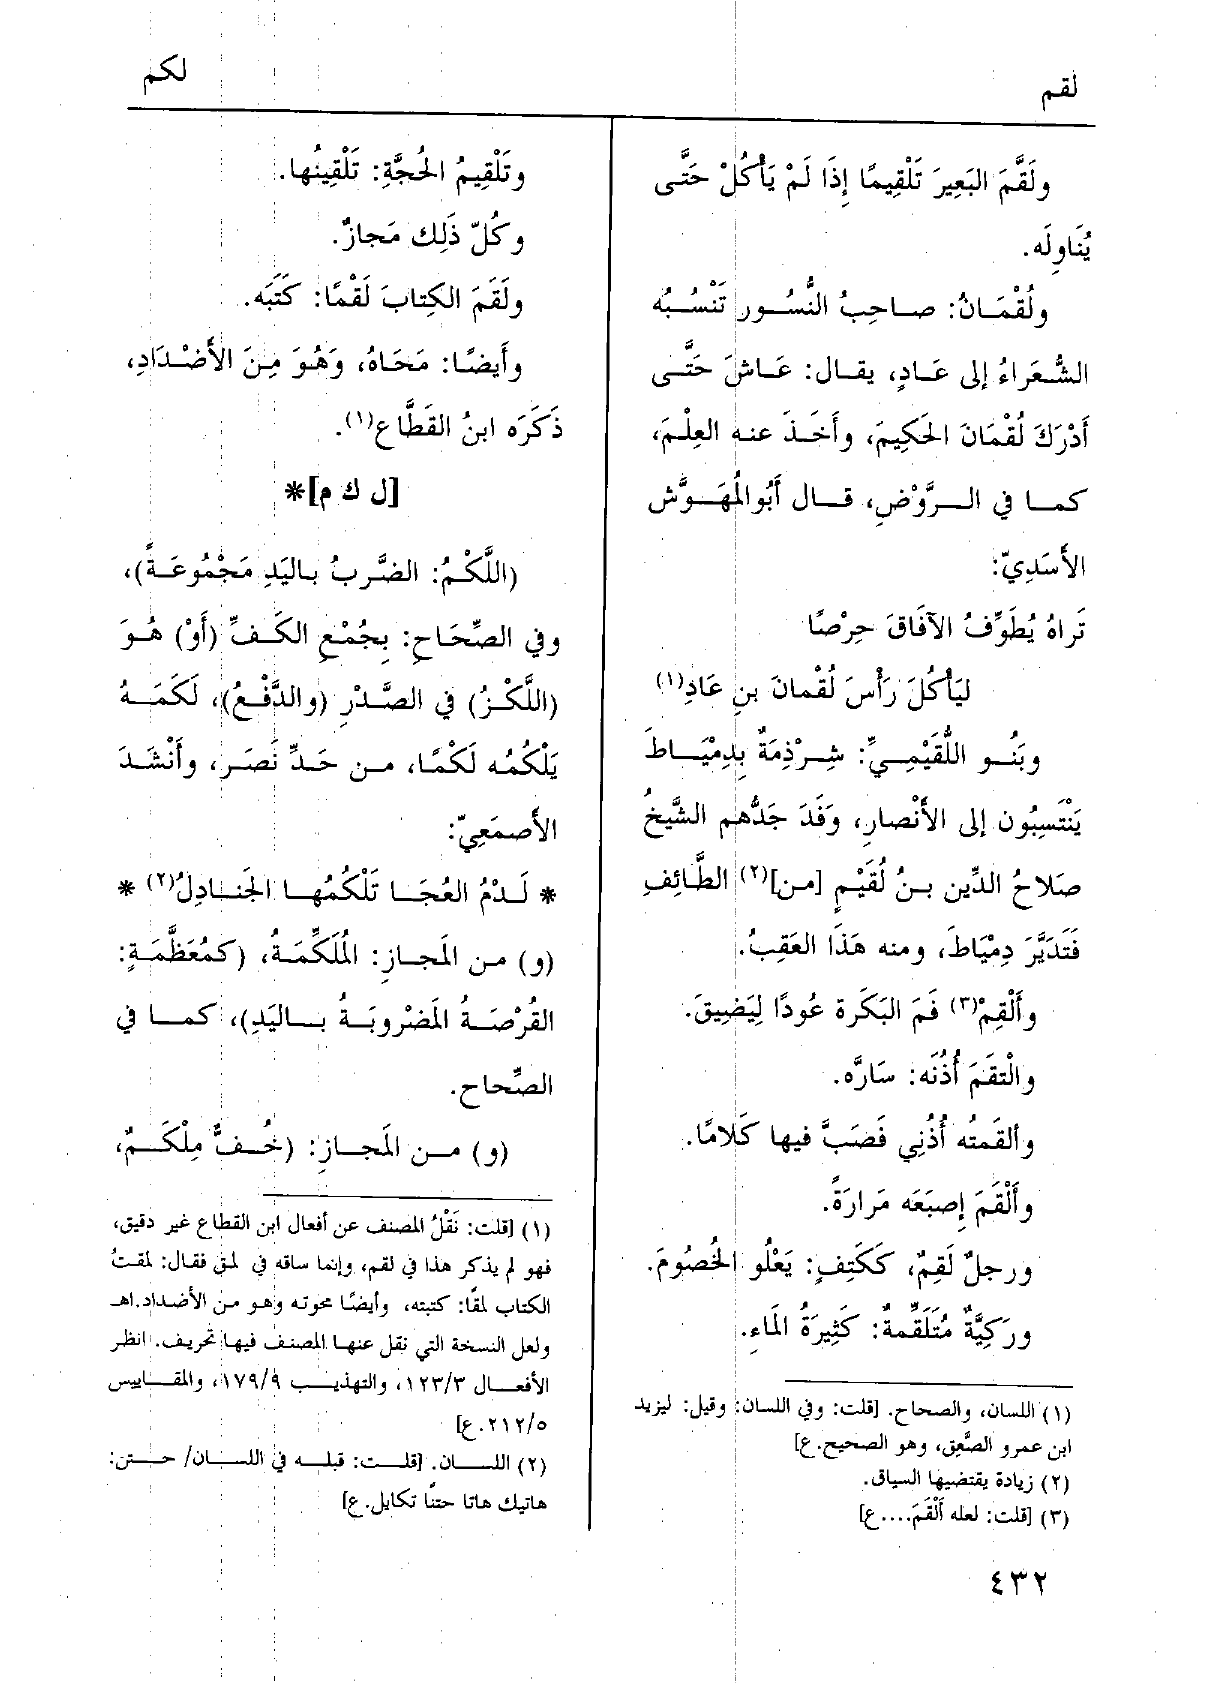 لقم
لكم
ولَقَّمَ البَعِيرَ تَلْقِيمًا إِذَا لَمْ يَأْكُلْ حَتَّى
يُنَاوِلَه.
ولُقْمَانُ: صاحِبُ النُّسُورِ تَنْسُبُه
الشُّعَراءُ إلى عَادٍ، يقال: عَاشَ حَتَّى
أَدْرَكَ لُقْمَانَ الحَكِيمَ، وأَخَذَ عنه العِلْمَ،
كما في الرَّوْضِ، قال أَبُوالْمُهَوَّش
الأَسَدِيّ:
تَراهُ يُطَوِّفُ الآفَاقَ حِرْصًا
لِيَأْكُلَ رَأْسَ لُقْمانَ بنِ عَادِ(١)
وبَنُو اللُّقَيْمِيِّ: شِرْذِمَةٌ بِدِمْيَاطَ
يَنْتَسِبُون إلى الأَنْصارِ، وَفَدَ جَدُّهم الشَّيخُ
صَلاحُ الدِّين بنُ لُقَيْمٍ [من](٢) الطَّائِفِ
فَتَدَيَّرَ دِمْيَاطَ، ومنه هَذَا العَقِبُ.
وأَلْقِمْ(٣) فَمَ البَكَرة عُودًا لِيَضِيقَ.
والْتَقَمَ أُذُنَه: سَارَّه.
وألقَمتُه أُذُنِي فَصَبَّ فيها كَلامًا.
وأَلْقَمَ إِصبَعَه مَرارَةً.
ورجلٌ لَقِمٌ، كَكَتِفٍ: يَعْلُو الخُصُومَ.
ورَكِيَّةٌ مُتَلَقِّمةٌ: كَثِيرَةُ المَاءِ.
(١) اللسان، والصحاح. [قلت: وفي اللسان: وقيل: ليزيد
ابن عمرو الصَّعِق، وهو الصحيح.ع]
(٢) زيادة يقتضيها السياق.
(٣) [قلت: لعله أَلْقَمَ....ع]
وتَلْقِيمُ الحُجَّةِ: تَلْقِينُها.
وكُلّ ذَلِك مَجازٌ.
ولَقَمَ الكِتابَ لَقْمًا: كَتَبَه.
وأَيضًا: مَحَاهُ، وَهُوَ مِنَ الأَضْدَادِ،
ذَكَرَه ابنُ القَطَّاع(١).
[ل ك م]*
(اللَّكْمُ: الضَّربُ باليَدِ مَجْمُوعَةً)،
وفي الصِّحَاحِ: بِجُمْعِ الكَفِّ (أَوْ) هُوَ
(اللَّكْزُ) في الصَّدْرِ (والدَّفْعُ)، لَكَمَهُ
يَلْكُمُه لَكْمًا، من حَدِّ نَصَر، وأَنْشَدَ
الأصمَعِيّ:
* لَدْمُ العُجَا تَلْكُمُها الجَنادِلُ(٢) *
(و) من المَجازِ: الْمُلَكِّمَةُ، (كمُعَظَّمَةٍ:
القُرْصَةُ المَضْروبَةُ باليَدِ)، كما في
الصِّحاح.
(و) من المَجازِ: (خُفٌّ مِلْكَمٌ،
(١) [قلت: نَقْلُ المصنف عن أفعال ابن القطاع غير دقيق،
فهو لم يذكر هذا في لقم، وإنما ساقه في لمق فقال: لمقتُ
الكتاب لمقًا: كتبته، وأيضًا محوته وهو من الأضداد.اهـ
ولعل النسخة التي نقل عنها المصنف فيها تحريف. انظر
الأفعال ١٢٣/٣، والتهذيب ١٧٩/٩، والمقاييس
٢١٢/٥.ع]
(٢) اللسان. [قلت: قبله في اللسان/ حتن:
هاتيك هاتا حتنًا تكايل.ع]
٤٣٢